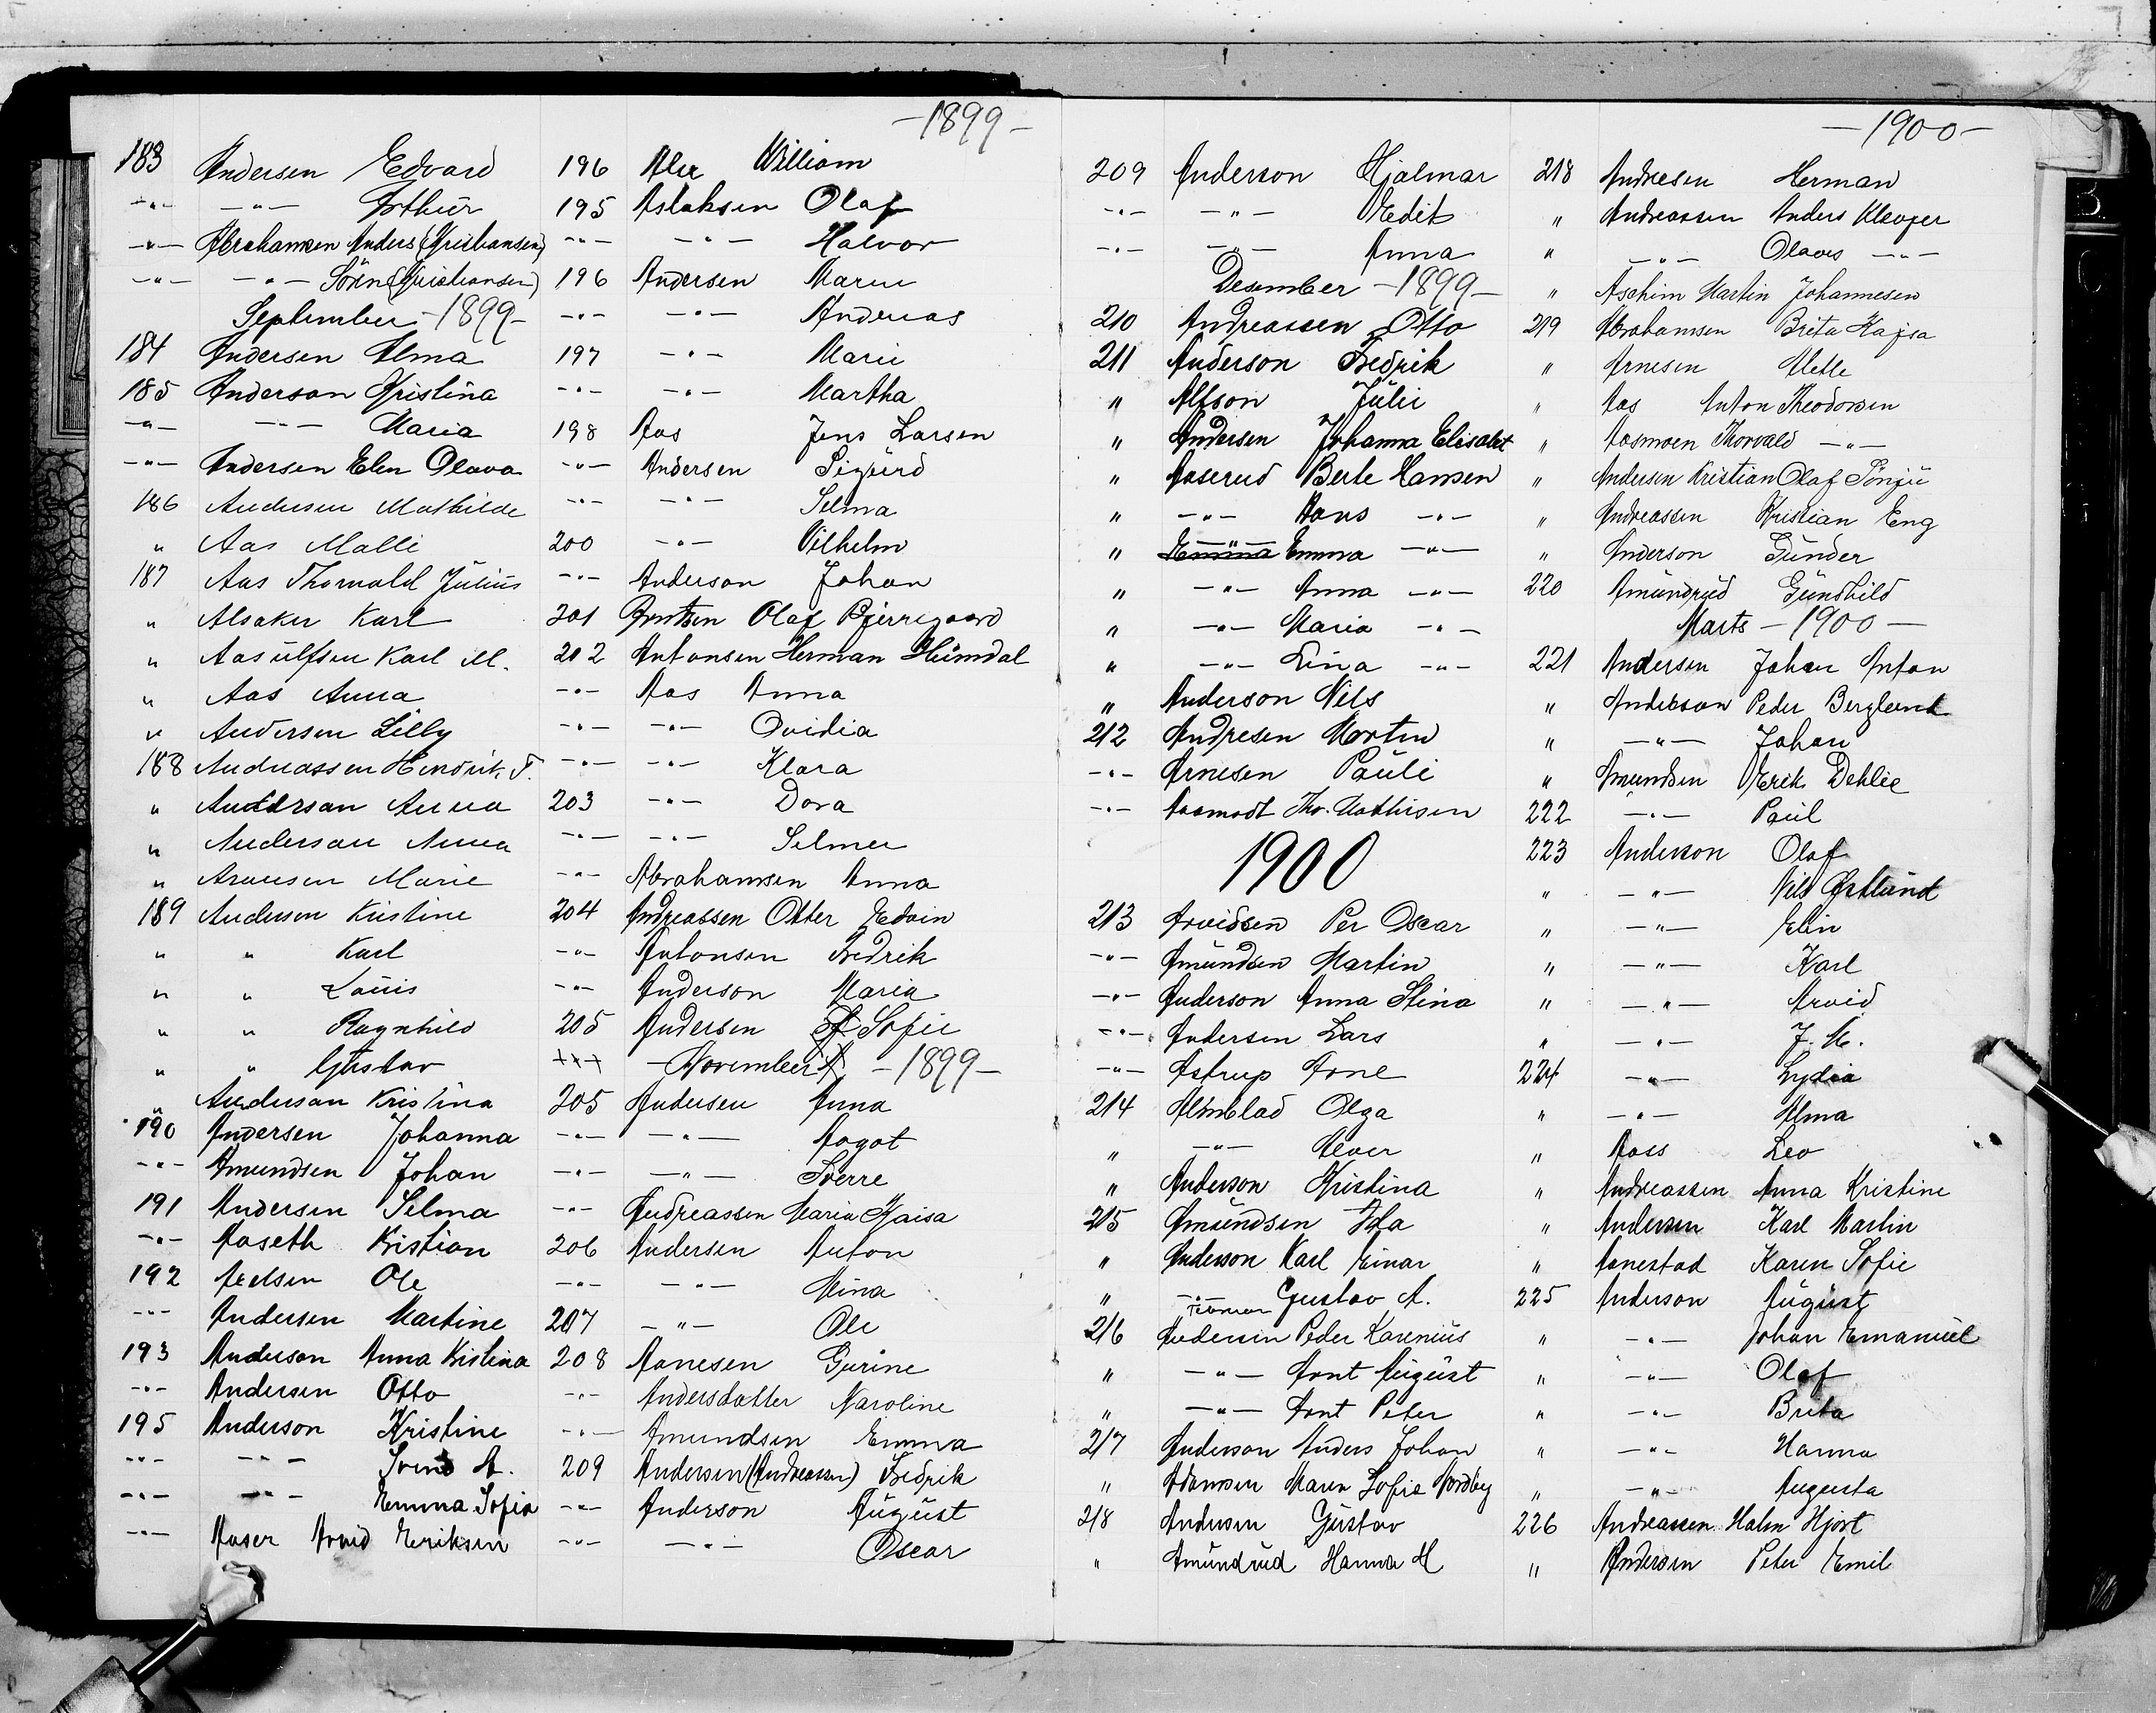 -1899-
183 Andersen Edvard
-"- -"- Arthur
-"- Abrahamsen Anders (Kristiansen)
-"- -"- Sörn (Kristiansen)
September -1899-
184 Andersen Alma
185 Anderson Kristina
-"- -"- Maria
-"- Andersen Elen Olava
186 Andersen Mathilde
" Aas Malli
187 Aas Thorvald Julius
" Alsaker Karl
" Aasulfsen Karl M.
" Aas Anna
" Andersen Lilly
188 Andreassen Hendrik T.
" Anderson Anna
" Anderson Anna
" Aronsen Marie
189 Andersen Kristine
" " Karl
" " Louis
" " Ragnhild
" " Gustav
" Anderson Kristina
190 Andersen Johanna
-"- Amundsen Johan
191 Andersen Selma
-"- Aaseth Kristian
192 Axelsen Ole
-"- Andersen Martine
193 Anderson Anna Kristina
-"- Andersen Otto
195 Anderson Kristine
-"- -"- Svend A.
-"- -"- Emma Sofia
-"- Aaser Arvid Eriksen
196 Alex William
195 Aslaksen Olaf
-"- -"- Halvor
196 Andersen Marie
-"- -"- Andreas
197 -"- Marie
-"- -"- Martha
198 Aas Jens Larsen
-"- Andersen Sigurd
-"- -"- Selma
200 -"- Vilhelm
-"- Anderson Johan
201 Arntsen Olaf Bjerregaard
202 Antonsen Herman Heimdal
-"- Aas Anna
-"- -"- Ovidia
-"- -"- Klara
203 -"- Dora
-"- -"- Selmer
-"- Abrahamsen Anna
204 Andreassen Otter Edvin
-"- Antonsen Fredrik
-"- Anderson Maria
205 Andersen Sofie
+++ -November -1899-
205 Andersen Anna
-"- -"- Aagot
-"- -"- Sverre
-"- Andreassen Maria Kaisa
206 Andersen Anton
-"- -"- Mina
207 -"- Ole
208 Aanesen Gurine
-"- Andersdatter Karoline
-"- Amundsen Emma
209 Andersen (Andreassen) Fredrik
-"- Anderson August
-"- -"- Oscar
-1900-
209 Anderson Hjalmar
-"- -"- Edit
-"- -"- Anna
Desember -1899-
210 Andreassen Otto
211 Anderson Fredrik
" Alfson Julie
" Andersen Johanna Elisabet
" Aaserud Berte Hansen
" -"- Hans -"-
" Emma Emma -"-
" -"- Anna -"-
" -"- Maria -"-
" -"- Lina -"-
" Anderson Nils
212 Andresen Morten
-"- Arnesen Pauli
-"- Aasmodt Thv. Mathisen
1900
213 Arvidsen Per Oscar
-"- Amundsen Martin
-"- Anderson Anna Stina
-"- Andersen Lars
-"- Astrup Arne
214 Almblad Olga
" -"- Alvar
" Anderson Kristina
215 Amundsen Ida
" Anderson Karl Einar
" -"- Gustav A.
Februar
216 Andersen Peder Karenius
" -"- Arnt August
" -"- Arnt Peter
217 Anderson Anders Johan
" Adamsen Maren Sofie Nordby
218 Andersen Gustav
" Amundrud Hanna M
218 Andresen Herman
" Andreassen Anders Klevger
" -"- Olaves -"-
" Aschim Martin Johannesen
219 Abrahamsen Brita Kajsa
" Arnesen Mette
" Aas Anton Theodorsen
" Aasmoen Thorvald -"-
" Andersen Kristian Olaf Sönju
" Andreassen Kristian Eng
" Anderson Gunder
220 Amundrud Gunhild
Marts -1900-
221 Andersen Johan Anton
" Anderson Peder Berglund
" -"- Johan
" Amundsen Erik Dehlie
222 -"- Paul
223 Anderson Olaf
" -"- Nils Østlund
" -"- Elin
" -"- Karl
" -"- Arvid
" -"- J. M.
224 -"- Lydia
" -"- Alma
" Aass Leo
" Andreassen Anna Kristine
" Andersen Karl Martin
" Aanestad Karen Sofie
225 Anderson August
" -"- Johan Emanuel
" -"- Olaf
" -"- Brita
" -"- Hanna
" -"- Augusta
226 Andreassen Halm Hjort
" Andersen Peter Emil